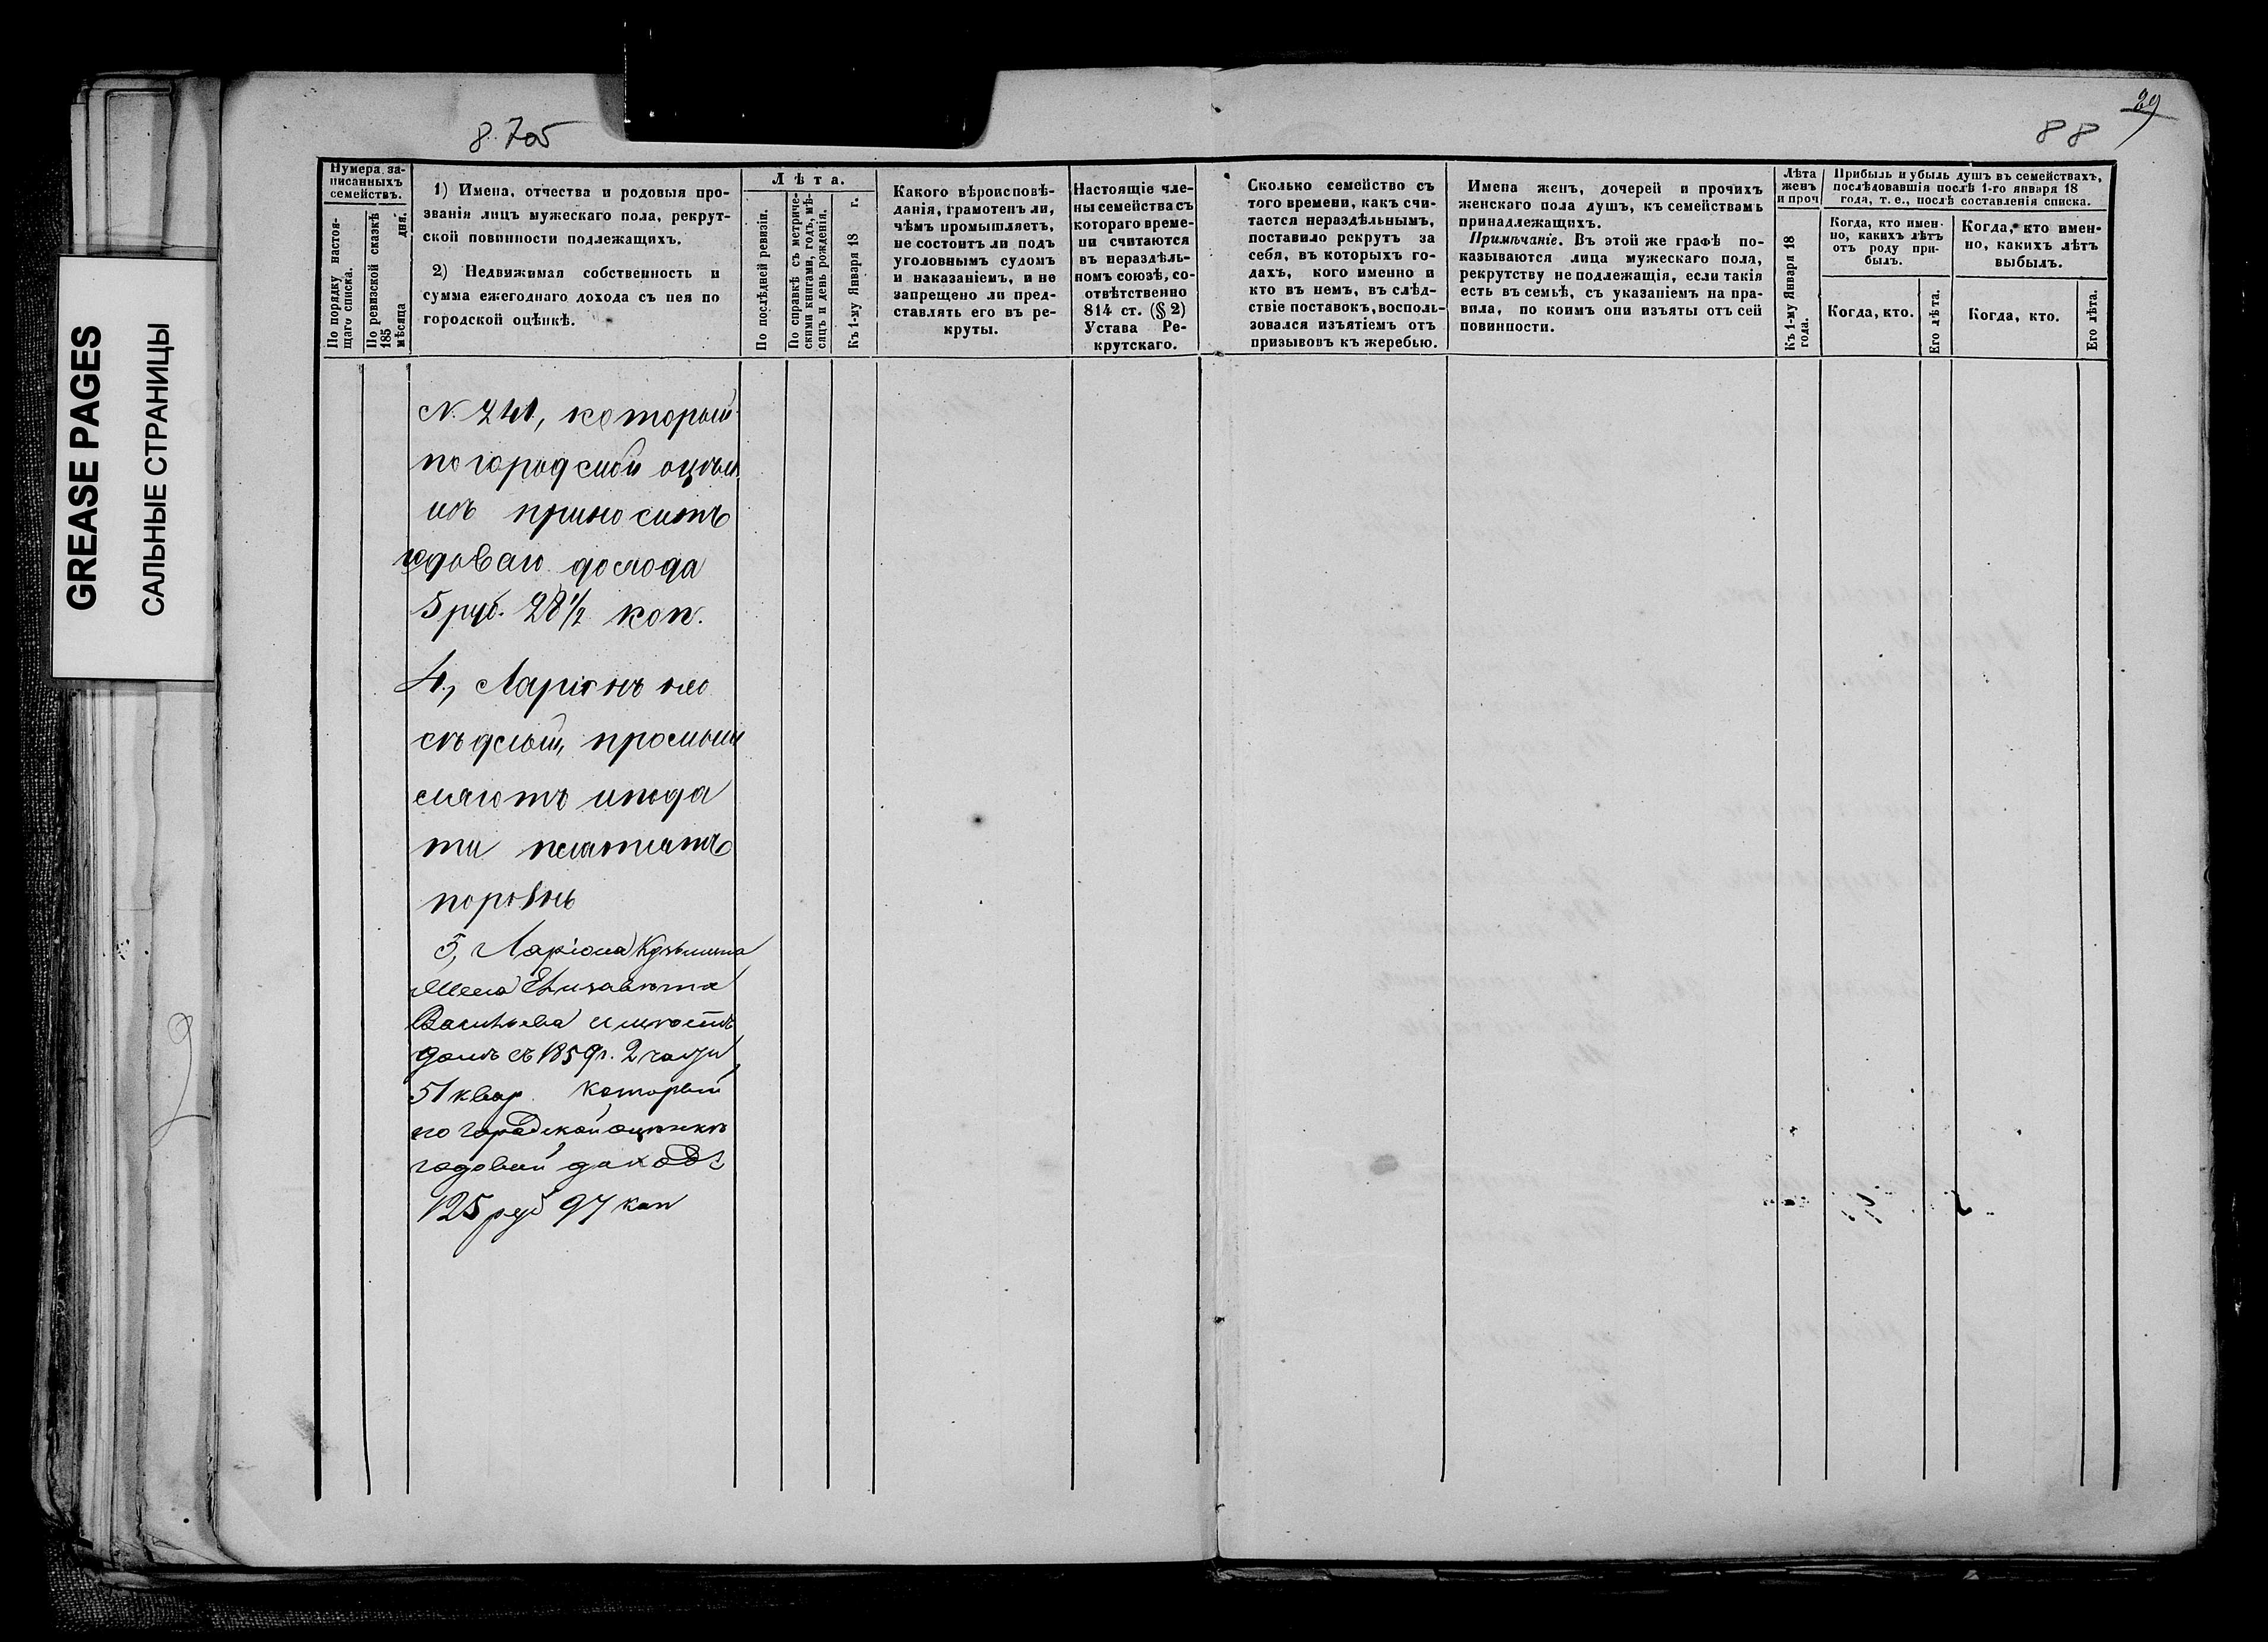 GREASE PAGES
САЛЬНЫЕ СТРАНИЦЫ
8.705
29
88
Нумера за-
писанныхъ
семействъ.
По порядку настоя-
щаго списка.
По ревизской сказкѣ
185 дня.
мѣсяца
1) Имена, отчества и родовыя про-
званія лицъ мужескаго пола, рекрут-
ской повинности подлежащихъ.
2) Недвижимая собственность и
сумма ежегоднаго дохода съ нея по
городской оцѣнкѣ.
Лѣта.
По послѣдней ревизіи.
По справкѣ съ метриче-
скими книгами, годъ, мѣ-
сяцъ и день рожденія.
Къ 1-му Января 18 г.
Какого вѣроисповѣ-
данія, грамотенъ ли,
чѣмъ промышляетъ,
не состоитъ ли подъ
уголовнымъ судомъ
и наказаніемъ, и не
запрещено ли пред-
ставлять его въ ре-
круты.
Настоящіе чле-
ны семейства съ
котораго време-
ни считаются
въ нераздѣль-
номъ союзѣ, со-
отвѣтственно
814 ст. (§ 2)
Устава Ре-
крутскаго.
Сколько семейство съ
того времени, какъ счи-
тается нераздѣльнымъ,
поставило рекрутъ за
себя, въ которыхъ го-
дахъ, кого именно и
кто въ немъ, въ слѣд-
ствіе поставокъ, восполь-
зовался изъятіемъ отъ
призывовъ къ жеребью.
Имена женъ, дочерей и прочихъ
женскаго пола душъ, къ семействамъ
принадлежащихъ.
Примѣчаніе. Въ этой же графѣ по-
казываются лица мужескаго пола,
рекрутству не подлежащія, если такія
есть въ семьѣ, съ указаніемъ на пра-
вила, по коимъ они изъяты отъ сей
повинности.
Лѣта
женъ
и проч
Къ 1-му Января 18
года.
Прибыль и убыль душъ въ семействахъ,
послѣдовавшія послѣ 1-го января 18
года, т. е., послѣ составленія списка.
Когда, кто имен-
но, какихъ лѣтъ
отъ роду при-
былъ.
Когда, кто.
Его лѣта.
Когда, кто имен-
но, какихъ лѣтъ
выбылъ.
Когда, кто.
Его лѣта.
N. 241, который
по городской оцѣн
кѣ приноситъ
годоваго дохода
5 руб. 28½ коп.
4, Ларіонъ
промыш
ляютъ и пода
ти платятъ
поровнъ
5, Ларіона Кузьмина
Жена Елизавета
Васильева имѣетъ
домъ съ 1859г. 2 части
51 квар. который
по городской оцѣнкѣ
годовой доходъ
125 руб 97 коп